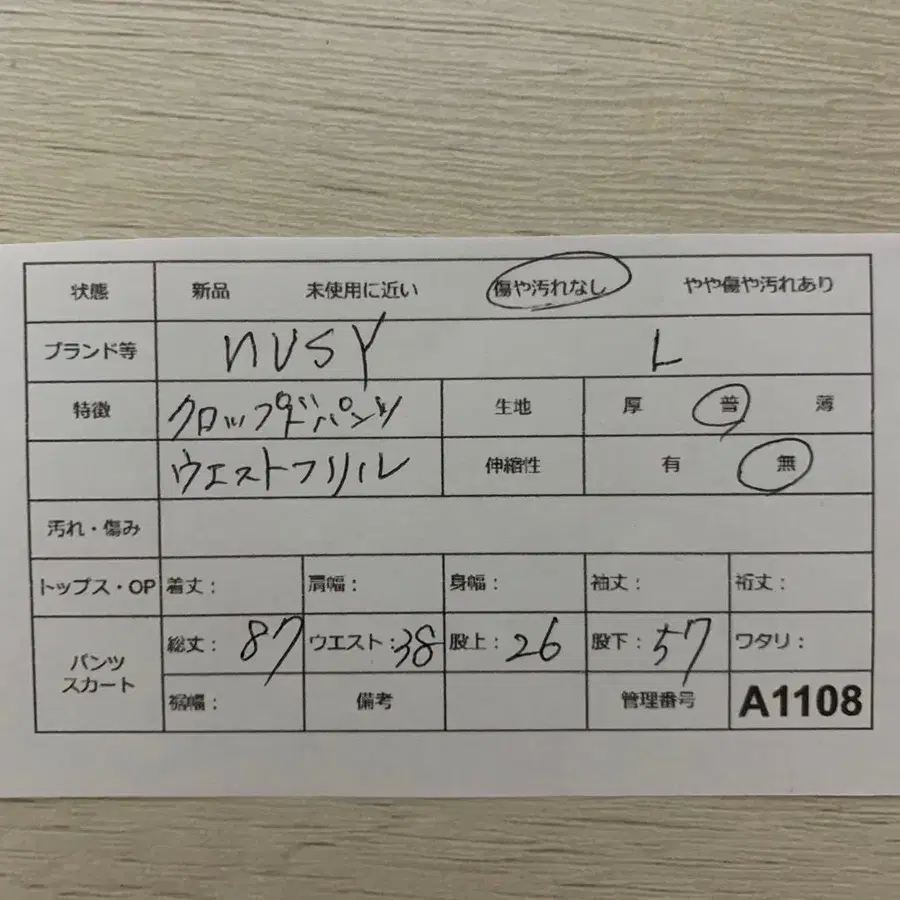 状態 新品 未使用に近い 傷や汚れなし やや傷や汚れあり
ブランド等 nusy L
特徴 クロップドパンツ 生地 厚 普 薄
ウエストフリル 伸縮性 有 無
汚れ・傷み
トップス・OP 着丈: 肩幅: 身幅: 袖丈: 裄丈:
パンツ スカート 総丈: 87 ウエスト: 38 股上: 26 股下: 57 ワタリ:
裾幅: 備考 管理番号 A1108